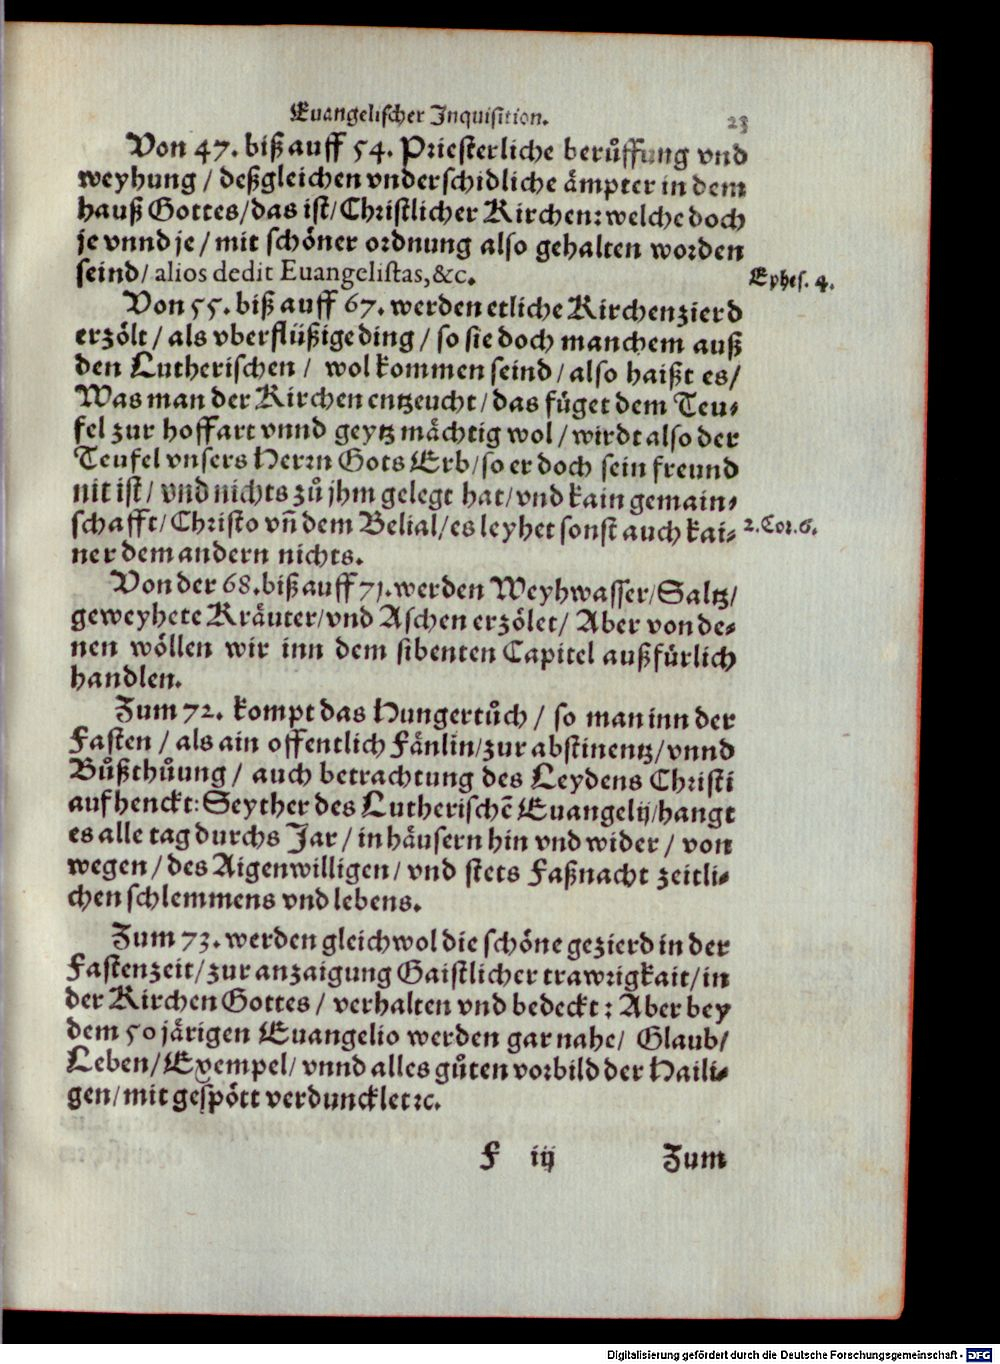 Euangelischer Inquisition.
23
Von 47. biß auff 54. Priesterliche berůffung vnd
weyhung / deßgleichen vnderschidliche ämpter in dem
hauß Gottes/das ist/Christlicher Kirchen: welche doch
je vnnd je / mit schöner ordnung also gehalten worden
seind/ alios dedit Euangelistas,&c.
Ephes. 4.
Von 55. biß auff 67. werden etliche Kirchenzierd
erzölt / als vberflüßige ding / so sie doch manchem auß
den Lutherischen / wol kommen seind / also haißt es/
Was man der Kirchen entzeucht / das füget dem Teu-
fel zur hoffart vnnd geytz mächtig wol / wirdt also der
Teufel vnsers Herrn Gots Erb/so er doch sein freund
nit ist / vnd nichts zů jhm gelegt hat/vnd kain gemain-
schafft/Christo vñ dem Belial/es leyhet sonst auch kai-
2. Cor. 6.
ner dem andern nichts.
Von der 68. biß auff 71. werden Weyhwasser/Saltz/
geweyhete Kräuter/vnd Aschen erzölet/ Aber von de-
nen wöllen wir inn dem sibenten Capitel außfürlich
handlen.
Zum 72. kompt das Hungertůch / so man inn der
Fasten / als ain offentlich Fänlin/zur abstinentz/vnnd
Bůßthůung / auch betrachtung des Leydens Christi
aufhenckt: Seyther des Lutherischẽ Euangelij/hangt
es alle tag durchs Jar / in häusern hin vnd wider / von
wegen / des Aigenwilligen / vnd stets Faßnacht zeitli-
chen schlemmens vnd lebens.
Zum 73. werden gleichwol die schöne gezierd in der
Fastenzeit/zur anzaigung Gaistlicher trawrigkait/in
der Kirchen Gottes / verhalten vnd bedeckt: Aber bey
dem 50 järigen Euangelio werden gar nahe/ Glaub/
Leben/Exempel/ vnnd alles gůten vorbild der Haili-
gen/mit gespött verduncklet ꝛc.
F iij
Zum
Digitalisierung gefördert durch die Deutsche Forschungsgemeinschaft - DFG